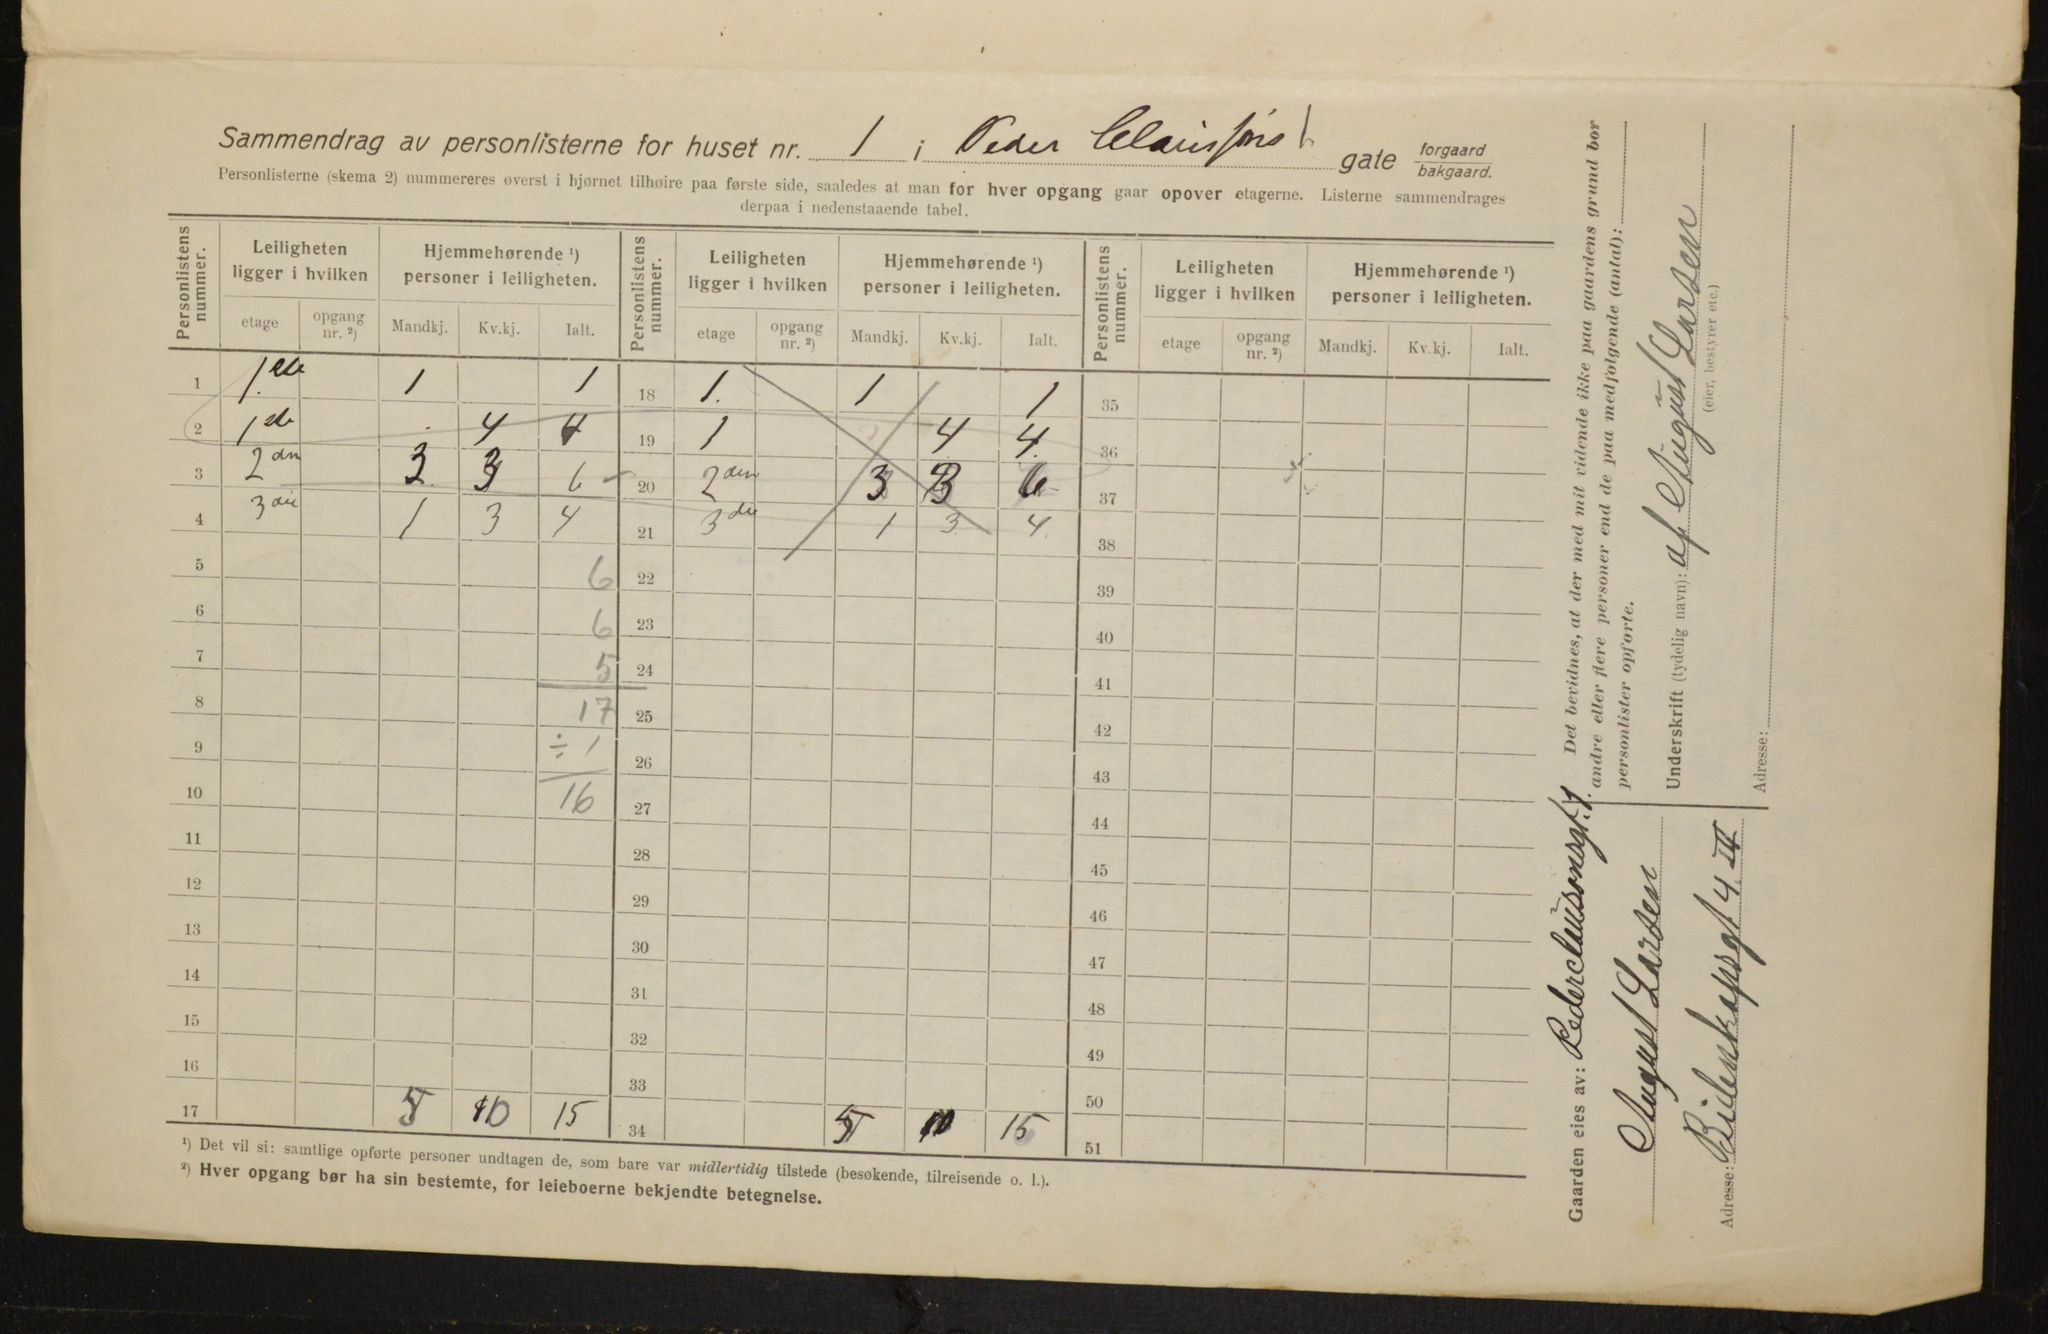 Sammendrag av personlisterne for huset nr. 1 i Peder Clausføns t. gate forgaard bakgaard.
Personlisterne (skema 2) nummereres øverst i hjørnet tilhøire paa første side, saaledes at man for hver opgang gaar opover etagerne. Listerne sammendrages
derpaa i nedenstaaende tabel.
Personlistens nummer. Leiligheten ligger i hvilken Hjemmehørende ¹) personer i leiligheten. Personlistens nummer. Leiligheten ligger i hvilken Hjemmehørende ¹) personer i leiligheten. Personlistens nummer. Leiligheten ligger i hvilken Hjemmehørende ¹) personer i leiligheten.
etage opgang nr. ²) Mandkj. Kv.kj. Ialt. etage opgang nr. ²) Mandkj. Kv.kj. Ialt. etage opgang nr. ²) Mandkj. Kv.kj. Ialt.
1 1. ste 1 1 18 1. 1 1 35
2 1 ste 4 4 19 1 4 4. 36
3 2 den 3 2. 3 6 20 2 den 3 3 6 37
4 3 die 1 3 4 21 3 die 1 3. 4. 38
5 6 22 39
6 6 23 40
7 5 24 41
8 17 25 42
9 ÷ 1 26 43
10 16 27 44
11 28 45
12 29 46
13 30 47
14 31 48
15 32 49
16 33 50
17 5 10 15 34 5 10 15 51
¹) Det vil si: samtlige opførte personer undtagen de, som bare var midlertidig tilstede (besøkende, tilreisende o. l.).
²) Hver opgang bør ha sin bestemte, for leieboerne bekjendte betegnelse.
Gaarden eies av: Pederclausonsgt. 1.
August Larsen
Adresse: Bidenkapsgt 4 III
Det bevidnes, at der med mit vidende ikke paa gaardens grund bor
andre eller flere personer end de paa medfølgende (antal):
personlister opførte.
Underskrift (tydelig navn): af August Larsen
(eier, bestyrer etc.)
Adresse: